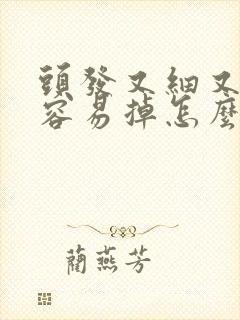 頭發又細又
容易掉怎麼
藺燕芳